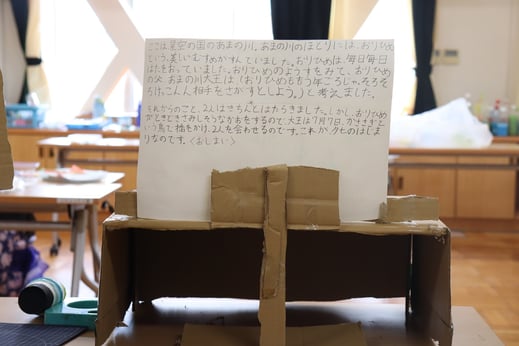 ここは星空の国のあまの川。あまの川のほとりには、おりひめ
という、美しいむすめがすんでいました。おりひめは、毎日毎日
はたをおっていました。おりひめのようすをみて、おりひめ
の父 あまの川大王は「おりひめももう年ごろじゃ。そろそ
ろけっこん相手をさがすとしよう。」と考えました。
それからのこと、2人はきちんとはたらきました。しかし、おりひめ
がときどきさみしそうなかおをするので、大王は7月7日、かささぎと
いう鳥で橋をかけ、2人を会わせるのです。これが七夕のはじま
りなのです。〈おしまい〉